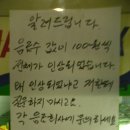 알려드립니다.
음료수 값이 100원씩
전체가 인상되었습니다
왜 인상되었냐고 저한테
질문하지 마시고..
각 음료회사에 문의하세요